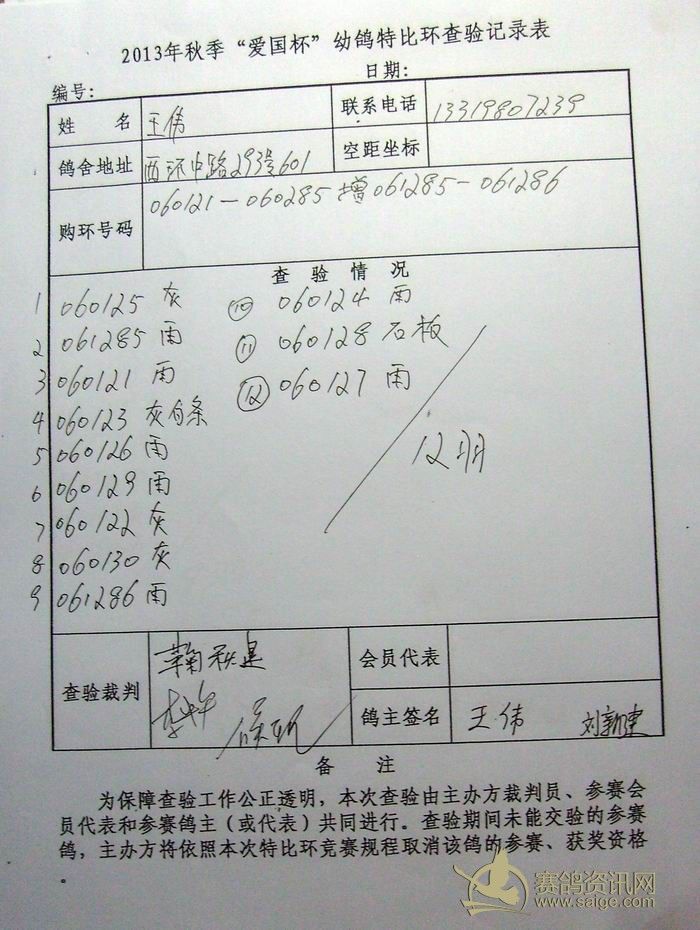 2013年秋季“爱国杯”幼鸽特比环查验记录表
编号: 日期:
姓名 王伟 联系电话 13319807239
鸽舍地址 西环中路293号601 空距坐标
购环号码 060121—060285 增061285—061286
查验情况
1 060125 灰 ⑩ 060124 雨
2 061285 雨 ⑪ 060128 石板
3 060121 雨 ⑫ 060127 雨
4 060123 灰白条
5 060126 雨 12羽
6 060129 雨
7 060122 灰
8 060130 灰
9 061286 雨
查验裁判 鞠秋是 会员代表
鸽主签名 王伟 刘新建
备注
为保障查验工作公正透明，本次查验由主办方裁判员、参赛会
员代表和参赛鸽主（或代表）共同进行。查验期间未能交验的参赛
鸽，主办方将依照本次特比环竞赛规程取消该鸽的参赛、获奖资格
。
赛鸽资讯网
www.saige.com